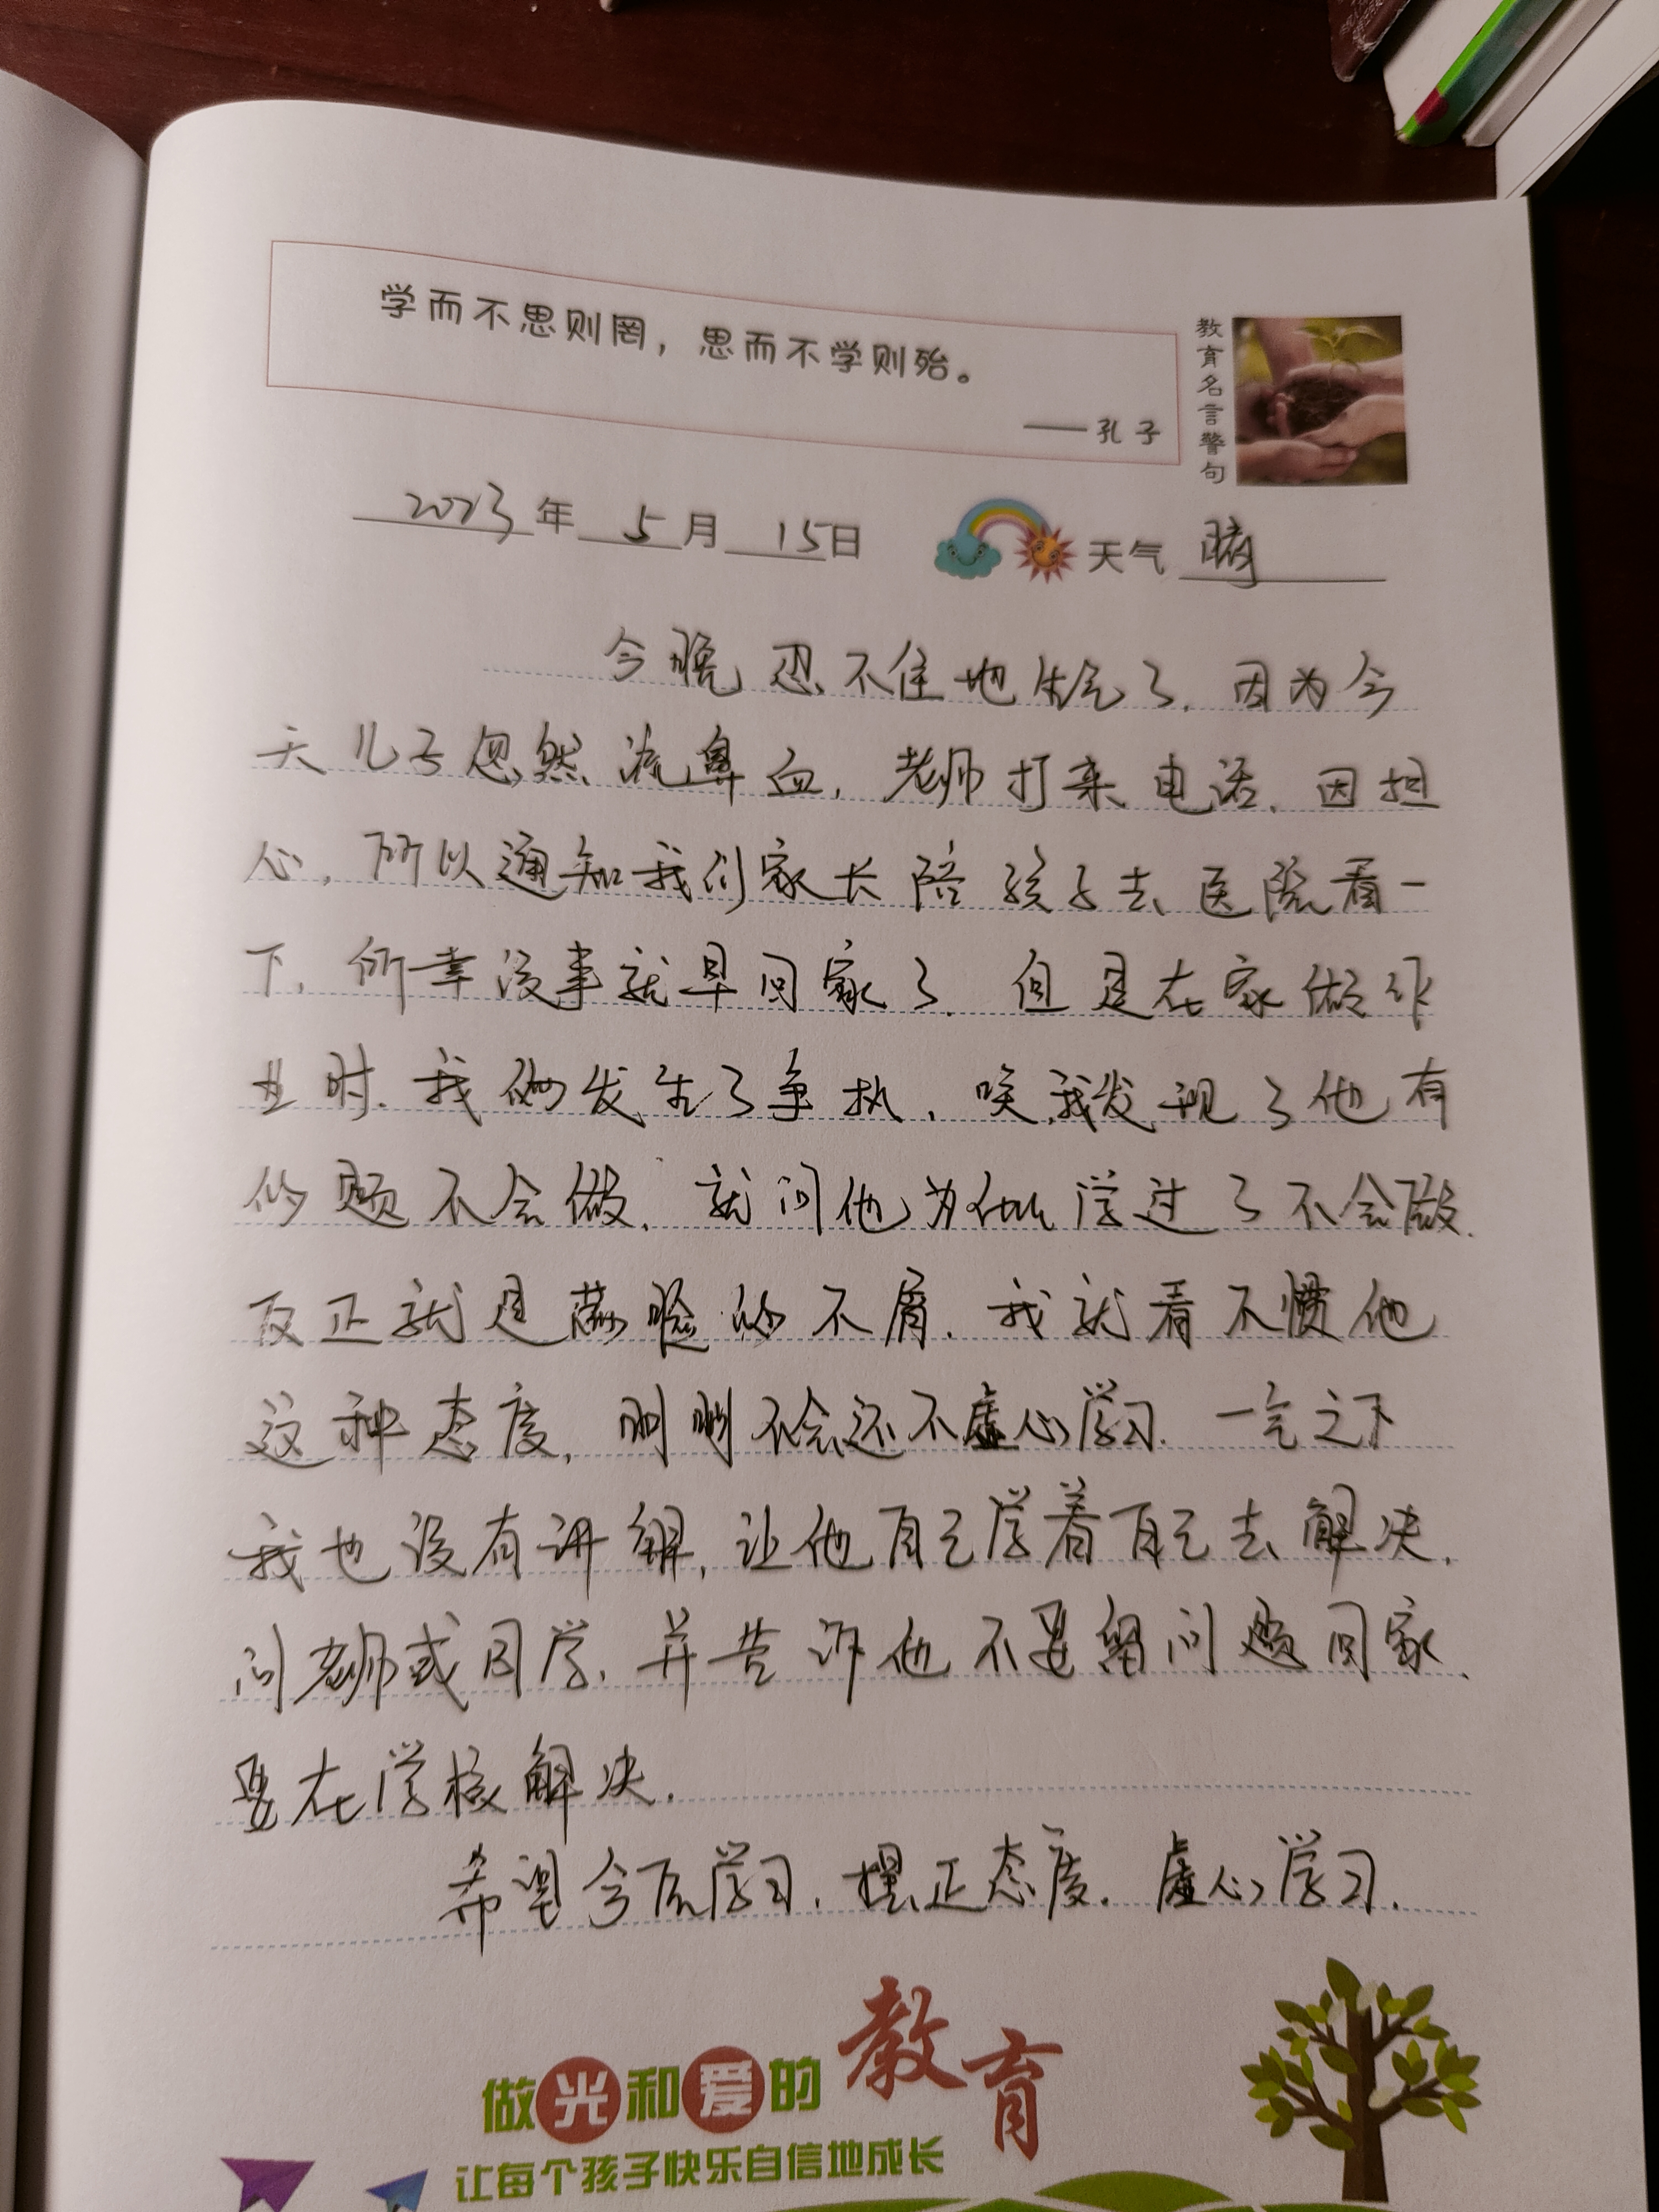 学而不思则罔，思而不学则殆。
——孔子
教育名言警句
2023年 5月 15日 天气 晴
今晚忍不住地生气了，因为今
天儿子忽然流鼻血，老师打来电话，因担
心，所以通知我们家长陪孩子去医院看一
下，所幸没事就早回家了，但是在家做作
业时，我俩发生了争执，唉，我发现了他有
的题不会做，就问他为什么学过了不会做，
反正就是满脸的不屑，我就看不惯他
这种态度，明明不会还不虚心学习，一气之下
我也没有讲解，让他自己学着自己去解决，
问老师或同学，并告诉他不要留问题回家，
要在学校解决。
希望今后学习，摆正态度，虚心学习。
做光和爱的教育
让每个孩子快乐自信地成长